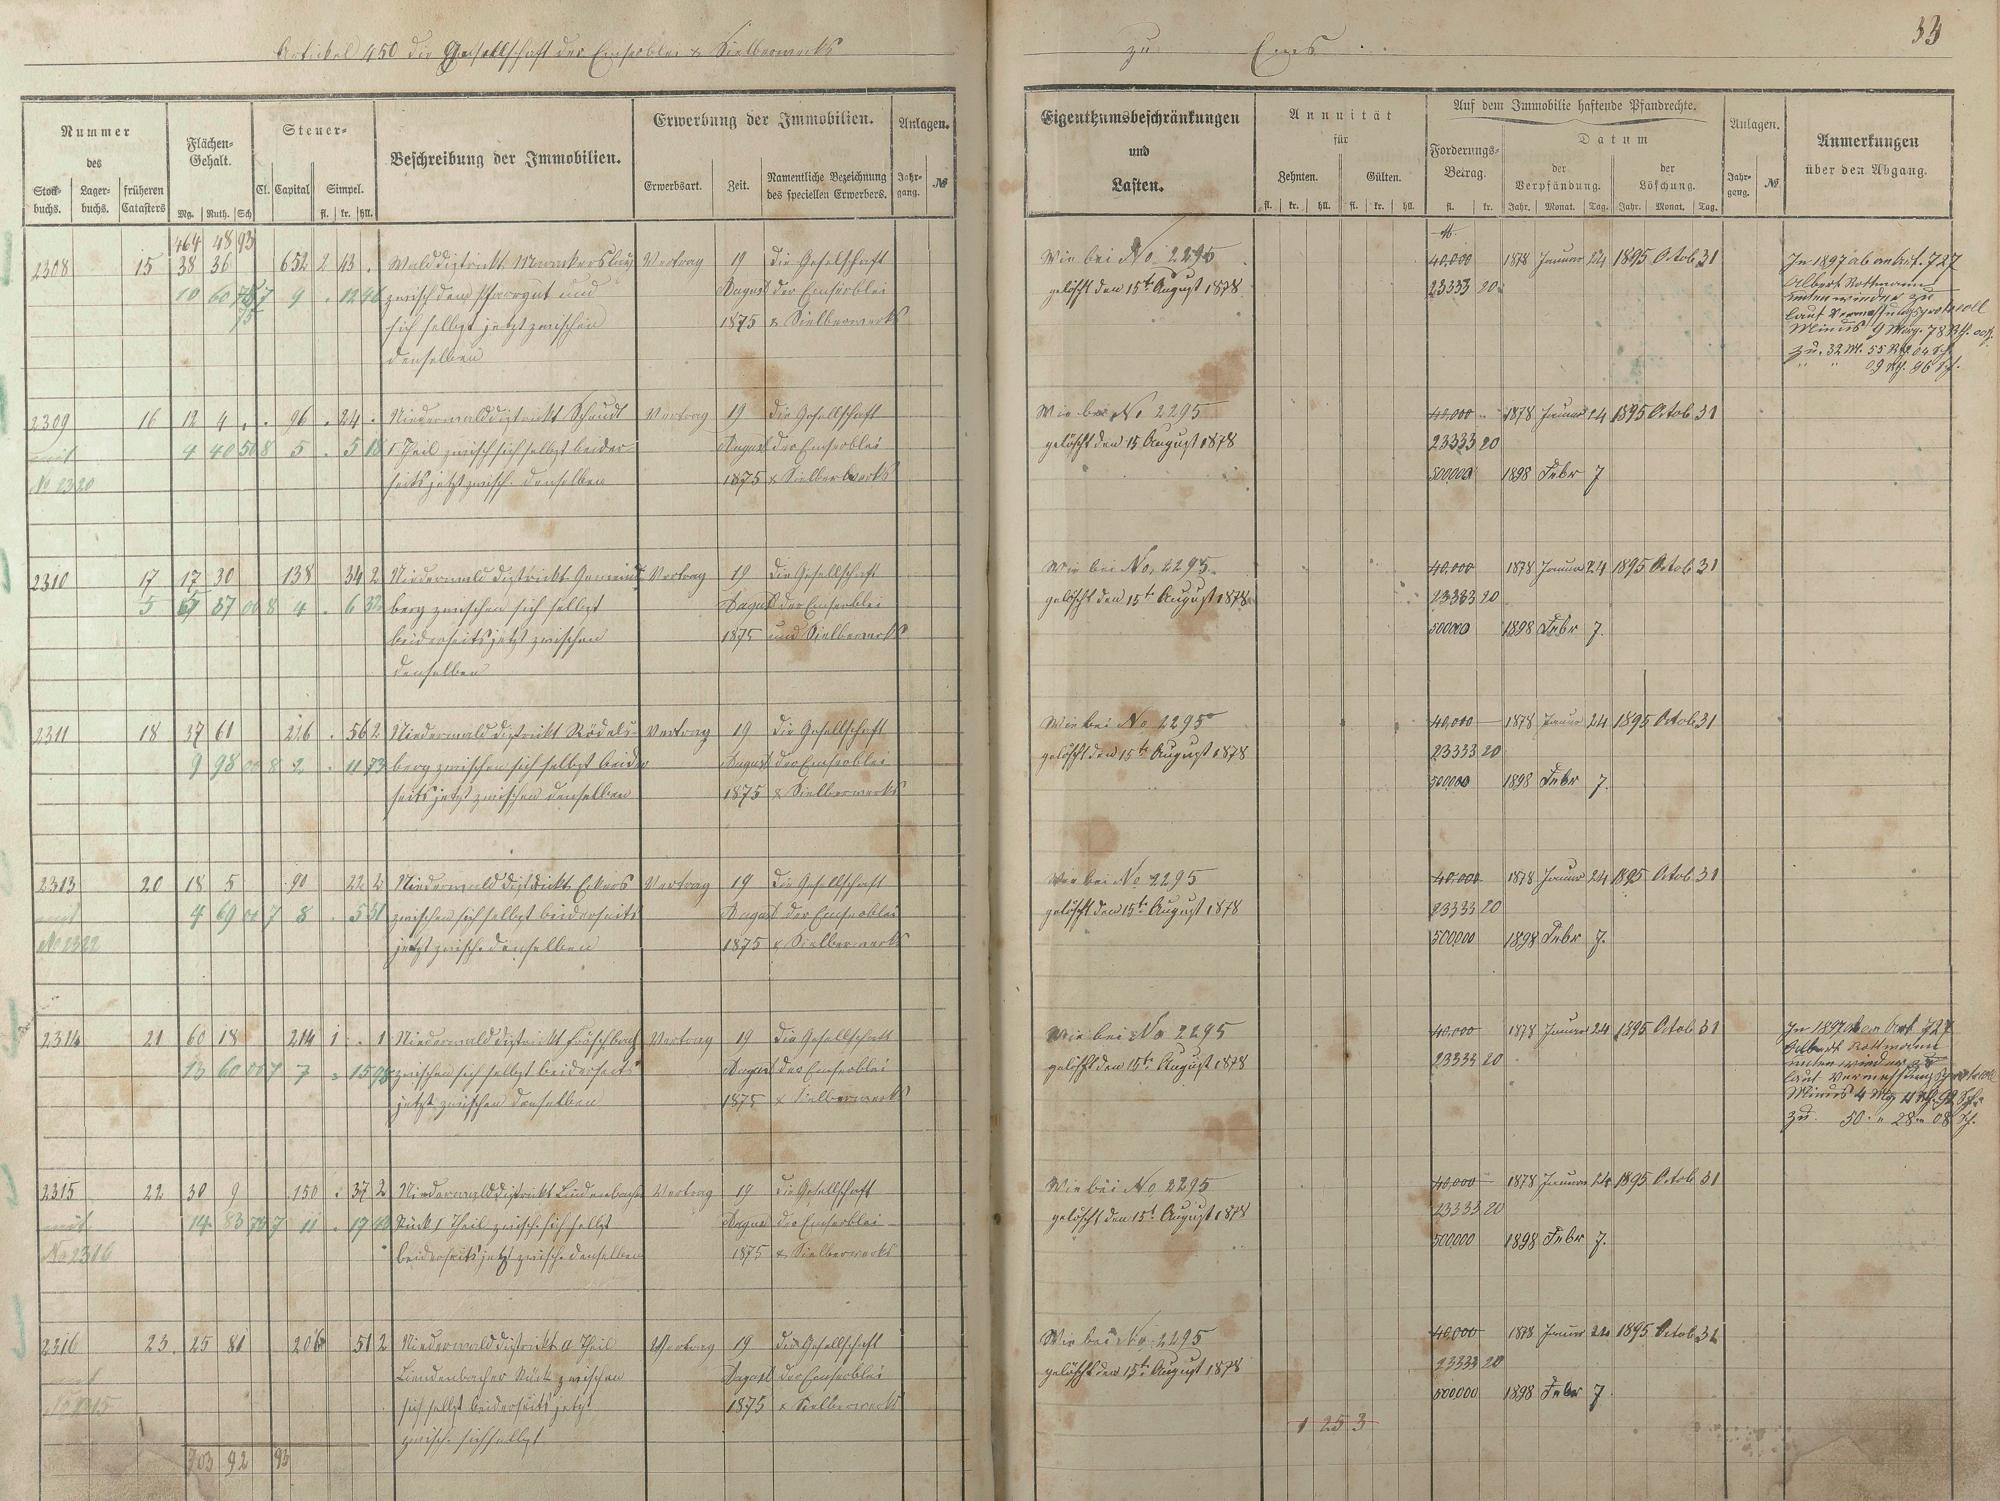 Artikel 450 die Gesellschaft des Emserblei & Sielberwerks
zu Ems
33
Nummer
des
Stockbuchs.
Lagerbuchs.
früheren Catasters
Flächen-Gehalt.
Mg. Ruth. Sch
Steuer-
Cl.
Capital
Simpel.
fl. kr. hll.
Beschreibung der Immobilien.
Erwerbung der Immobilien.
Erwerbsart.
Zeit.
Namentliche Bezeichnung des speciellen Erwerbers.
Anlagen.
Jahrgang.
№
Eigenthumsbeschränkungen
und
Lasten.
Annuität
für
Zehnten.
Gülten.
fl. kr. hll. fl. kr. hll.
Auf dem Immobilie haftende Pfandrechte.
Forderungs-Betrag.
fl. kr.
Datum
der Verpfändung.
Jahr. Monat. Tag.
der Löschung.
Jahr. Monat. Tag.
Anlagen.
Jahrgang.
№
Anmerkungen
über den Abgang.
464 48 93
2308 15 38 36 652 2 43 . Walddistrikt Vertrag 19 die Gesellschaft
10 60 7 9 . 12 96 zwisch dem Pfarrgut und August der Emserblei
sich selbst jetzt zwischen 1875 & Sielberwerks
denselben
Wie bei No. 2295
gelöscht den 15t August 1878
40,000 1878 Januar 24 1895 Octob 31
23333 20
In 1897 ab an Art. 727
Albert Rottmann
laut Vermessungsprotocoll
Minus 9 Morg. 78 Rth.
zu. 32 M. 55 Rth. 04 Sch.
2309 16 12 4 . . 96 . 24 . Niederwalddistrikt Vertrag 19 die Gesellschaft
mit 4 40 50 8 5 . 5 18 1 Theil zwisch sich selbst beider- August der Emserblei
No 2320 seits jetzt zwisch. denselben 1875 & Sielberwerks
Wie bei No 2295
gelöscht den 15 August 1878
40,000 1878 Januar 24 1895 Octob 31
23333 20
500000 1898 Febr 7
2310 17 17 30 138 34 2 Niederwalddistrikt Gemeind Vertrag 19 die Gesellschaft
5 87 00 8 4 . 6 berg zwischen sich selbst August der Emserblei
beiderseits jetzt zwischen 1875 und Sielberwerks
denselben
Wie bei No. 2295
gelöscht den 15t August 1878
40,000 1878 Januar 24 1895 Octob 31
23333 20
500000 1898 Febr 7.
2311 18 37 61 226 . 56 2 Niederwalddistrikt Rödels- Vertrag 19 die Gesellschaft
9 98 00 8 2 . 11 73 berg zwischen sich selbst beider August der Emserblei
seits jetzt zwischen denselben 1875 & Sielberwerks
Wie bei No. 2295
gelöscht den 15t August 1878
40,000 1878 Januar 24 1895 Octob 31
23333 20
500000 1898 Febr 7.
2313 20 18 5 90 22 2 Niederwalddistrikt Vertrag 19 die Gesellschaft
mit 4 69 7 8 . 5 51 zwischen sich selbst beiderseits August der Emserblei
No 2322 jetzt zwisch. denselben 1875 & Sielberwerks
Wie bei No 2295
gelöscht den 15t August 1878
40,000 1878 Januar 24 1895 Octob 31
23333 20
500000 1898 Febr 7.
2314 21 60 18 214 1 . 1 Niederwalddistrikt Fröschbach Vertrag 19 die Gesellschaft
13 60 00 7 7 zwischen sich selbst beiderseits August der Emserblei
jetzt zwischen denselben 1875 & Sielberwerks
Wie bei No 2295
gelöscht den 15t August 1878
40,000 1878 Januar 24 1895 Octob 31
23333 20
In 1897 ab an Art 727
Albert Rottmann
laut Vermessungsprotocoll
Minus 4 Mg
zu. 50 " 28 " 08 Sch.
2315 22 30 9 150 . 37 2 Niederwalddistrikt Lindenbacher Vertrag 19 die Gesellschaft
mit 14 83 7 11 . 17 Stück 1 Theil zwisch. sich selbst August der Emserblei
No 2316 beiderseits jetzt zwisch. denselben 1875 & Sielberwerks
Wie bei No 2295
gelöscht den 15t August 1878
40,000 1878 Januar 24 1895 Octob 31
23333 20
500000 1898 Febr 7.
2316 23. 25 81 206 51 2 Niederwalddistrikt a Theil Vertrag 19 die Gesellschaft
mit Liendenbacher Stück zwischen August der Emserblei
sich selbst beiderseits jetzt 1875 & Sielberwerks
zwisch. sich selbst
703 92 93
Wie bei No 2295
gelöscht den 15t August 1878
40,000 1878 Januar 24 1895 Octob 31
23333 20
500000 1898 Febr 7
1 25 3